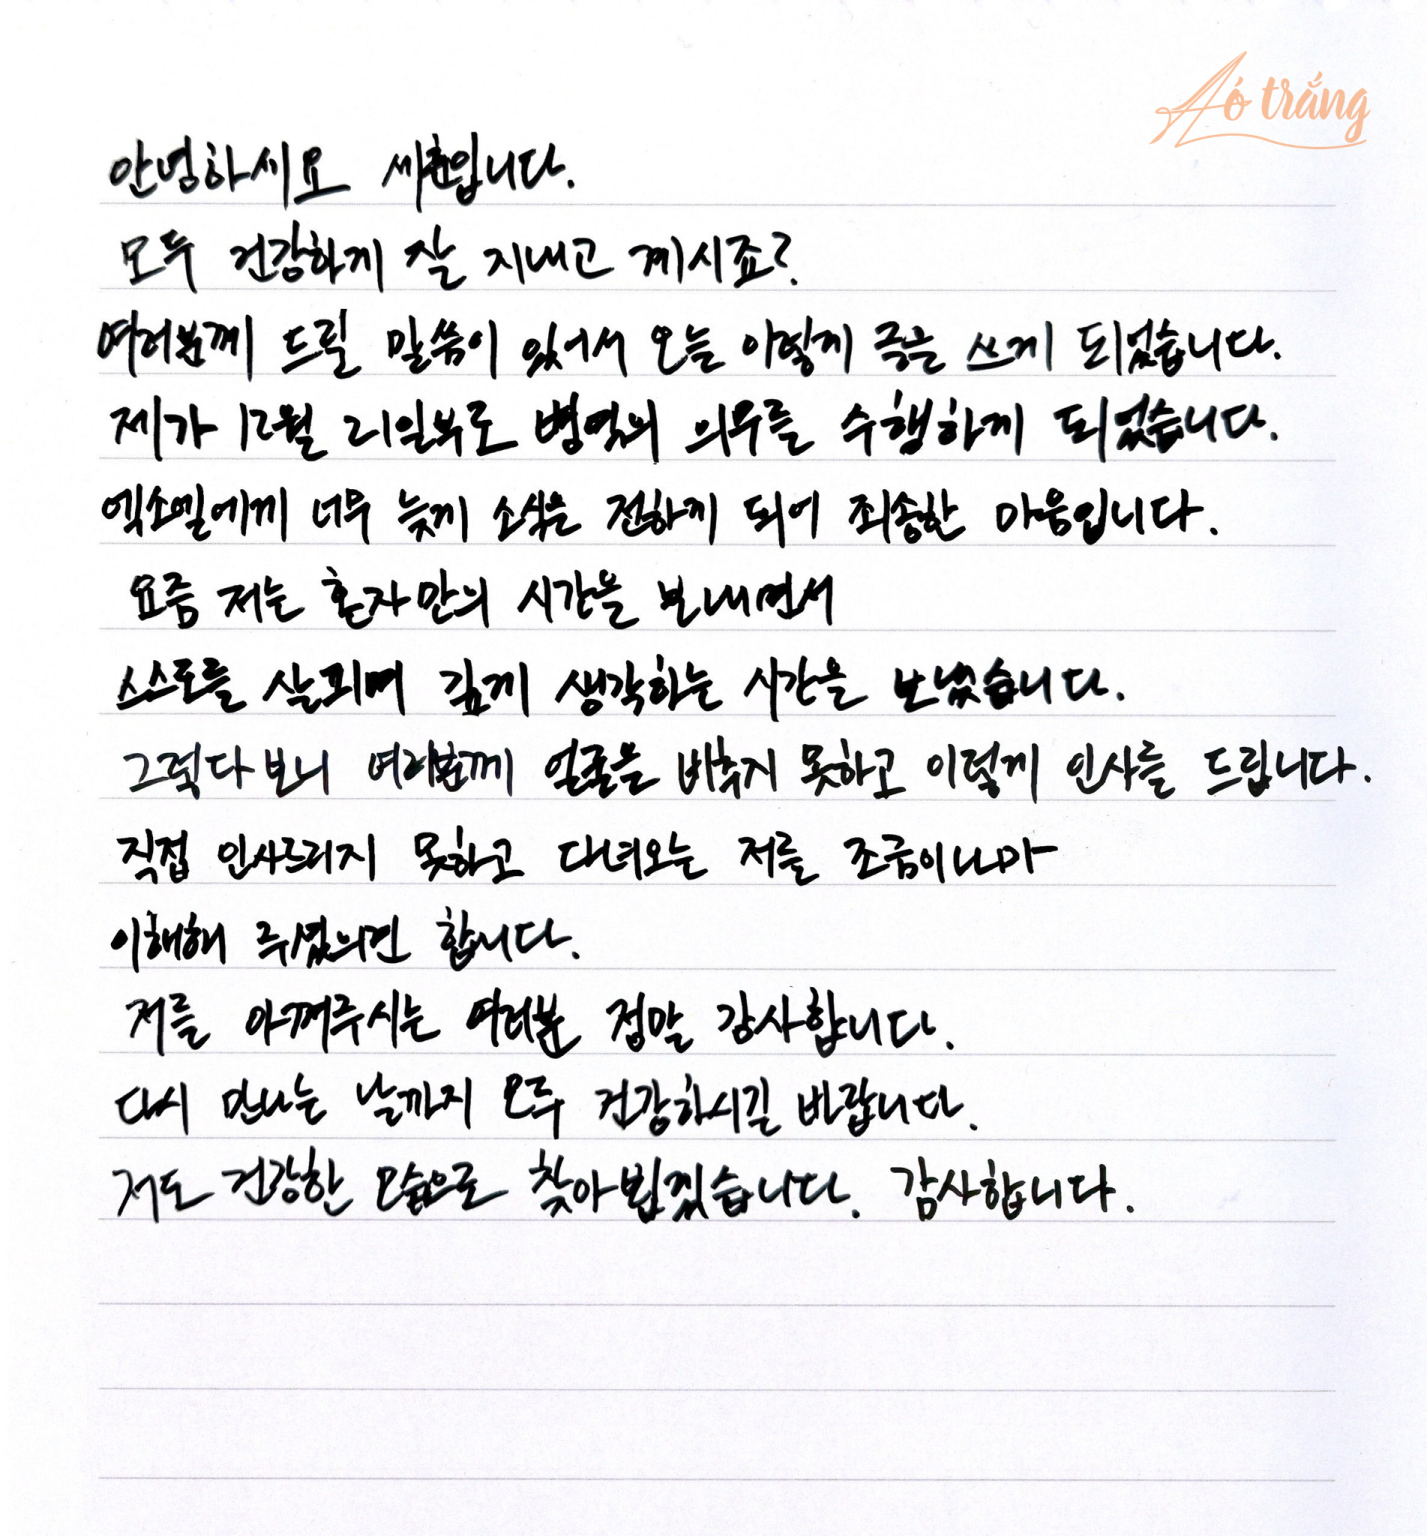 Áo trắng
안녕하세요 세훈입니다.
모두 건강하게 잘 지내고 계시죠?
여러분께 드릴 말씀이 있어서 오늘 이렇게 글을 쓰게 되었습니다.
제가 12월 21일부로 병역의 의무를 수행하게 되었습니다.
엑소엘에게 너무 늦게 소식을 전하게 되어 죄송한 마음입니다.
요즘 저는 혼자만의 시간을 보내면서
스스로를 살피며 깊게 생각하는 시간을 보냈습니다.
그렇다보니 여러분께 얼굴을 비추지 못하고 이렇게 인사를 드립니다.
직접 인사드리지 못하고 다녀오는 저를 조금이나마
이해해 주셨으면 합니다.
저를 아껴주시는 여러분 정말 감사합니다.
다시 만나는 날까지 모두 건강하시길 바랍니다.
저도 건강한 모습으로 찾아뵙겠습니다. 감사합니다.